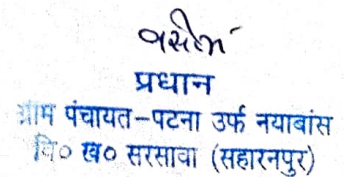 वसीम
प्रधान
ग्राम पंचायत-पटना उर्फ नयाबांस
वि० ख० सरसावा (सहारनपुर)